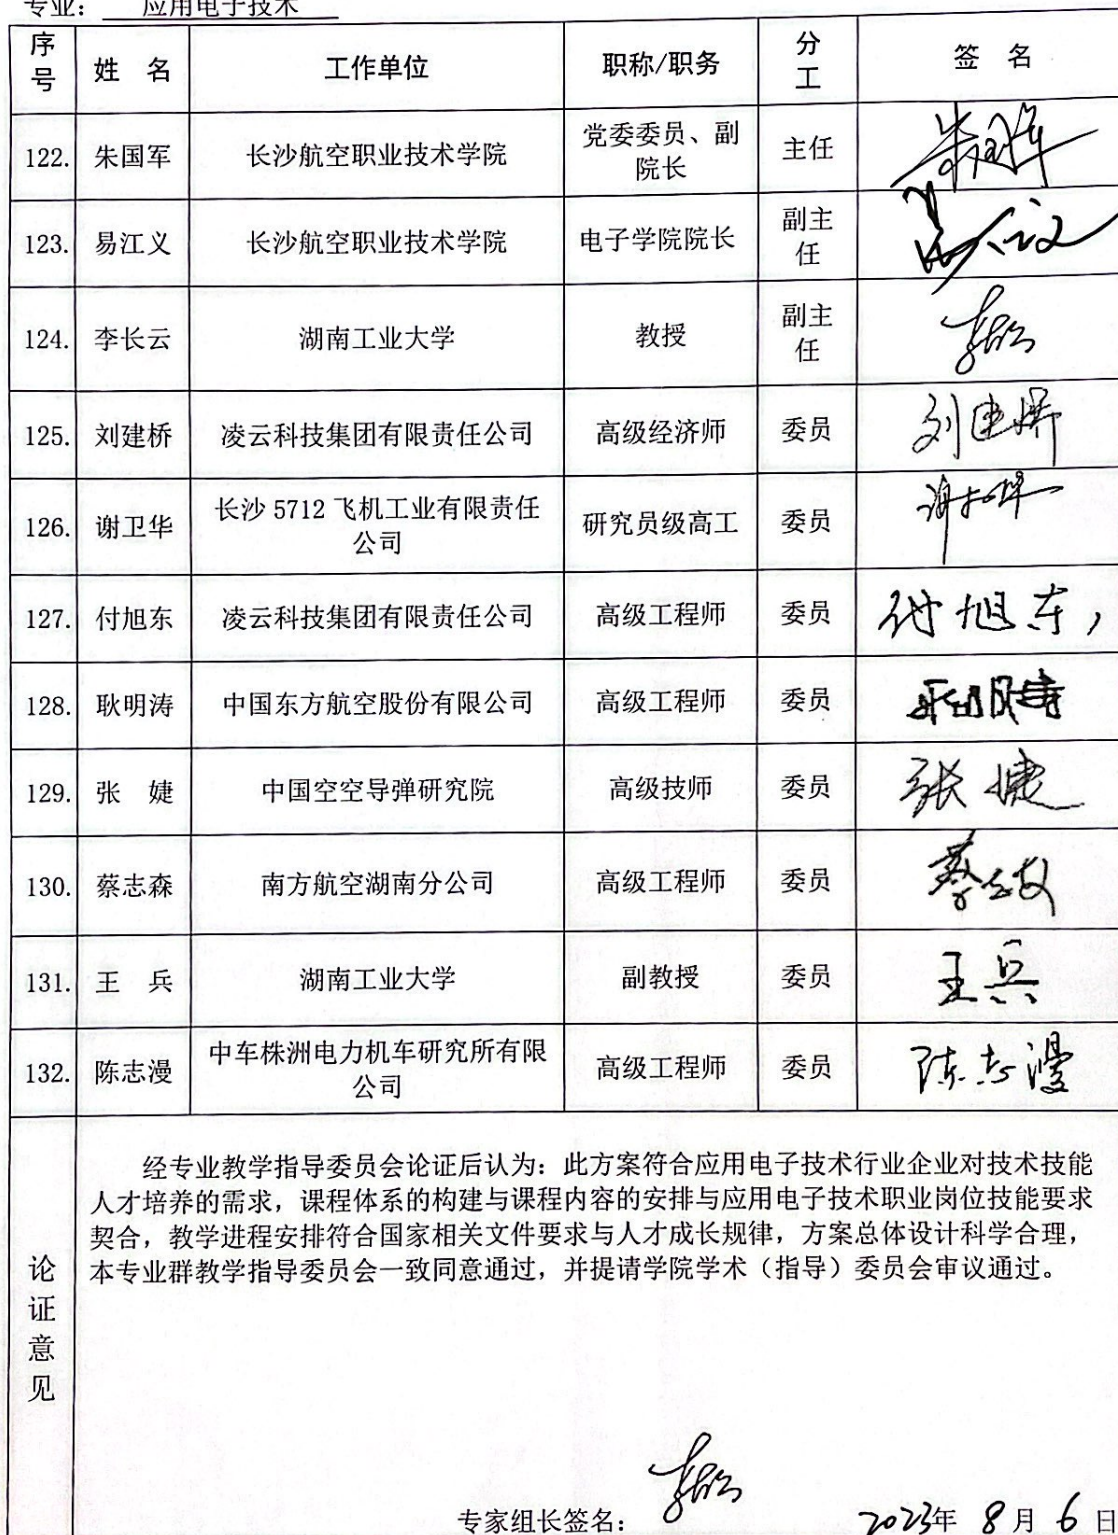 专业： 应用电子技术
序号 姓 名 工作单位 职称/职务 分工 签 名
122. 朱国军 长沙航空职业技术学院 党委委员、副院长 主任 朱国军
123. 易江义 长沙航空职业技术学院 电子学院院长 副主任
124. 李长云 湖南工业大学 教授 副主任
125. 刘建桥 凌云科技集团有限责任公司 高级经济师 委员 刘建桥
126. 谢卫华 长沙 5712 飞机工业有限责任公司 研究员级高工 委员
127. 付旭东 凌云科技集团有限责任公司 高级工程师 委员 付旭东
128. 耿明涛 中国东方航空股份有限公司 高级工程师 委员
129. 张 婕 中国空空导弹研究院 高级技师 委员 张婕
130. 蔡志森 南方航空湖南分公司 高级工程师 委员
131. 王 兵 湖南工业大学 副教授 委员 王兵
132. 陈志漫 中车株洲电力机车研究所有限公司 高级工程师 委员 陈志漫
论证意见
经专业教学指导委员会论证后认为：此方案符合应用电子技术行业企业对技术技能
人才培养的需求，课程体系的构建与课程内容的安排与应用电子技术职业岗位技能要求
契合，教学进程安排符合国家相关文件要求与人才成长规律，方案总体设计科学合理，
本专业群教学指导委员会一致同意通过，并提请学院学术（指导）委员会审议通过。
专家组长签名： 2023年 8月 6日